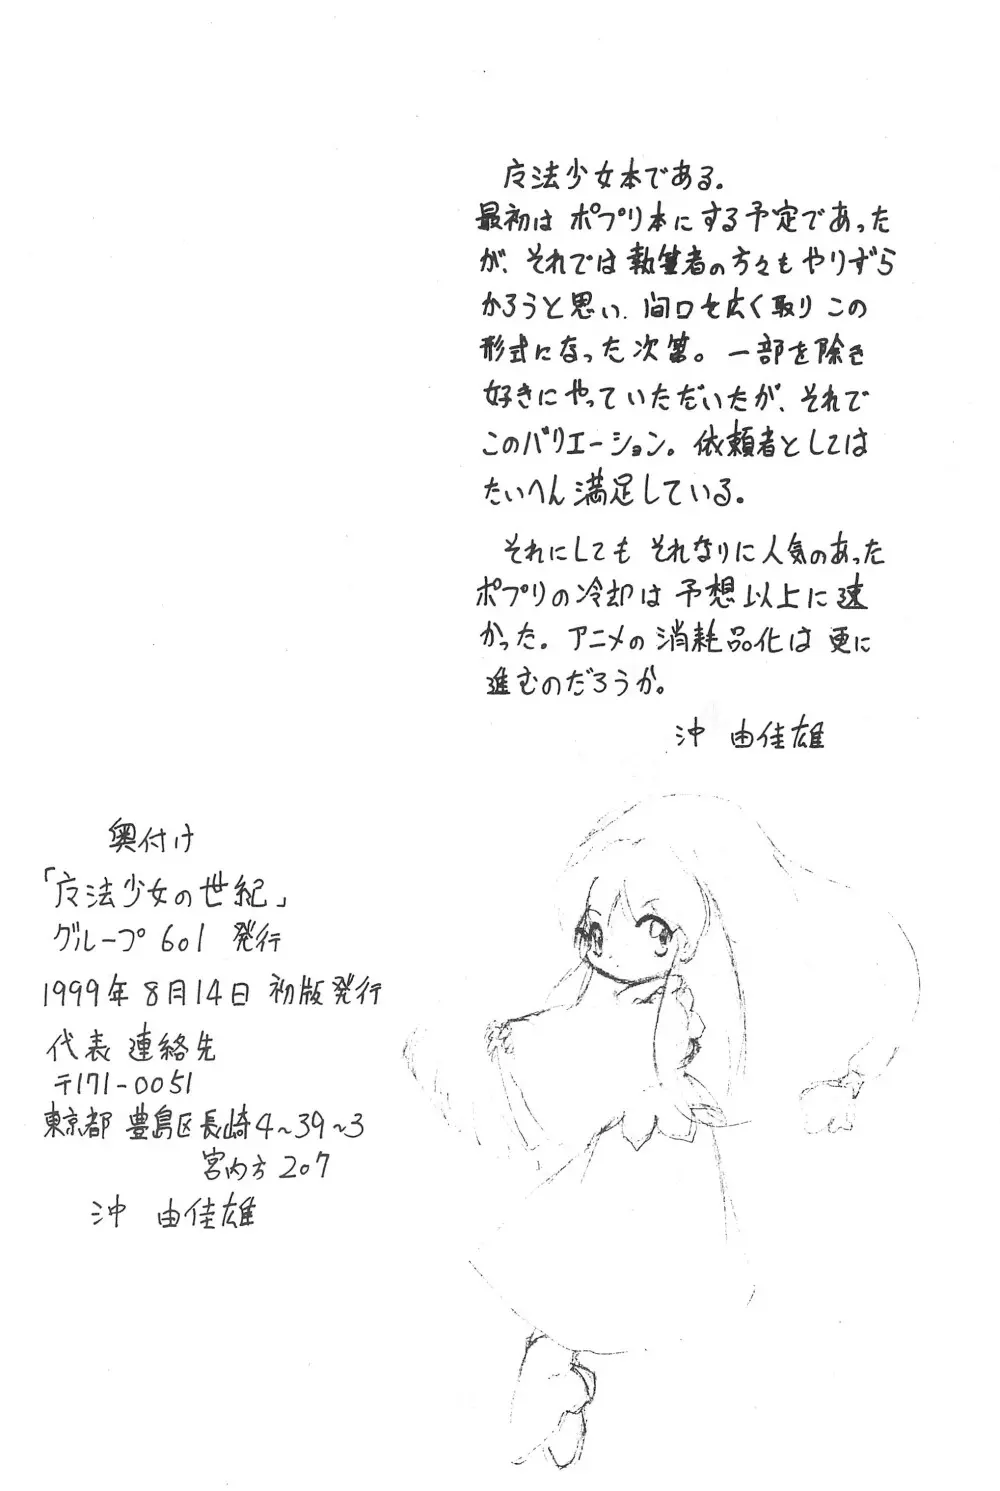 魔法少女本である。
最初は ポプリ本にする予定であった
が、それでは執筆者の方々もやりずら
かろうと思い、間口を広く取り この
形式になった次第。一部を除き
好きにやっていただいたが、それで
このバリエーション。依頼者としては
たいへん満足している。
それにしても それなりに人気のあった
ポプリの冷却は 予想以上に速
かった。アニメの 消耗品化は 更に
進むのだろうか。
沖 由佳雄
奥付け
「魔法少女の世紀」
グループ601 発行
1999年8月14日 初版発行
代表 連絡先
〒171-0051
東京都 豊島区長崎4~39~3
宮内方207
沖 由佳雄